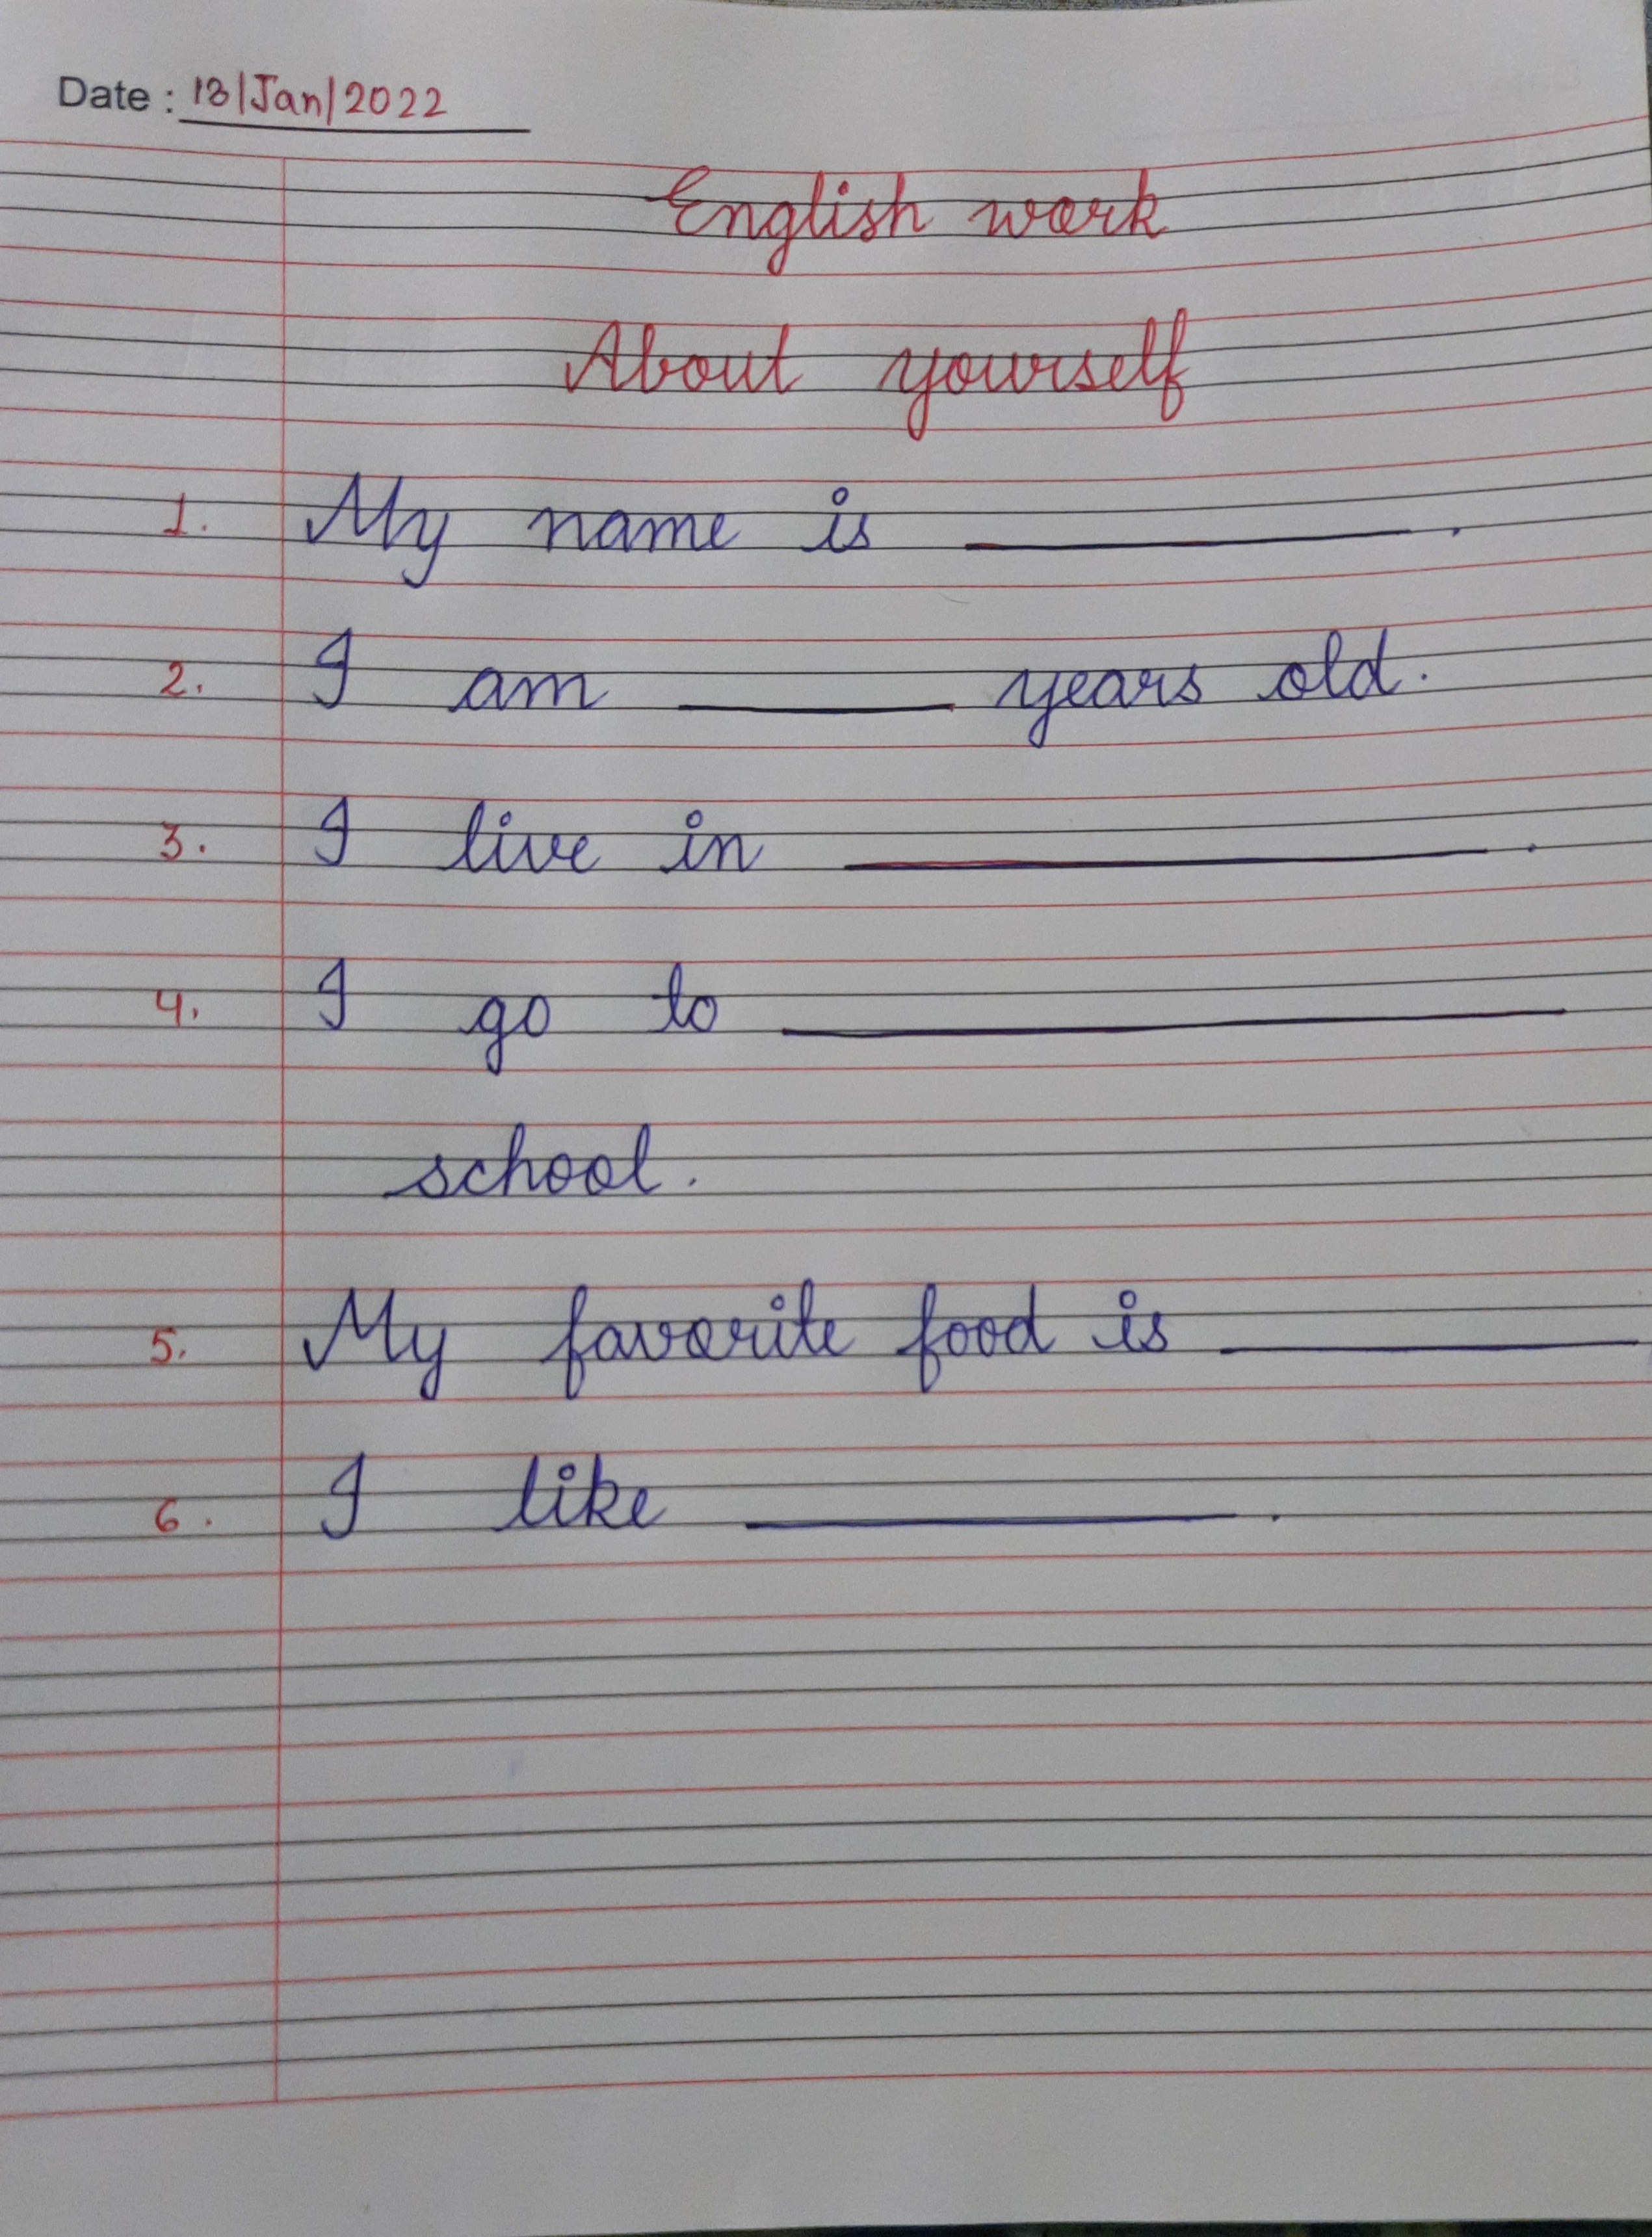 Date : 13/Jan/2022
English work
About yourself
1. My name is ____________ .
2. I am ________ years old.
3. I live in ________________ .
4. I go to ____________________
school.
5. My favorite food is ___________
6. I like ____________ .